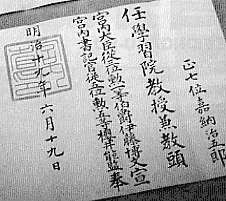 正七位嘉納治五郎
任學習院教授兼教頭
宮内大臣從三位勲一等伯爵伊藤博文宣
宮内書記官從五位勲五等櫻井能監奉
明治十九年六月十九日